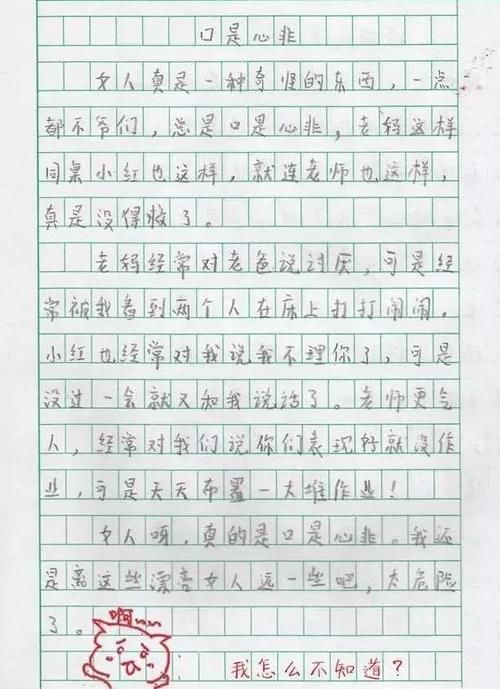 口是心非
女人真是一种奇怪的东西，一点
都不爷们，总是口是心非，老妈这样
同桌小红也这样，就连老师也这样，
真是没得救了。
老妈经常对老爸说讨厌，可是经
常被我看到两个人在床上打打闹闹。
小红也经常对我说我不理你了，可是
没过一会就又和我说话了。老师更气
人，经常对我们说你们表现好就没作
业，可是天天布置一大堆作业！
女人呀，真的是口是心非。我还
是离这些漂亮女人远一些吧，太危险
了。
啊
我怎么不知道？